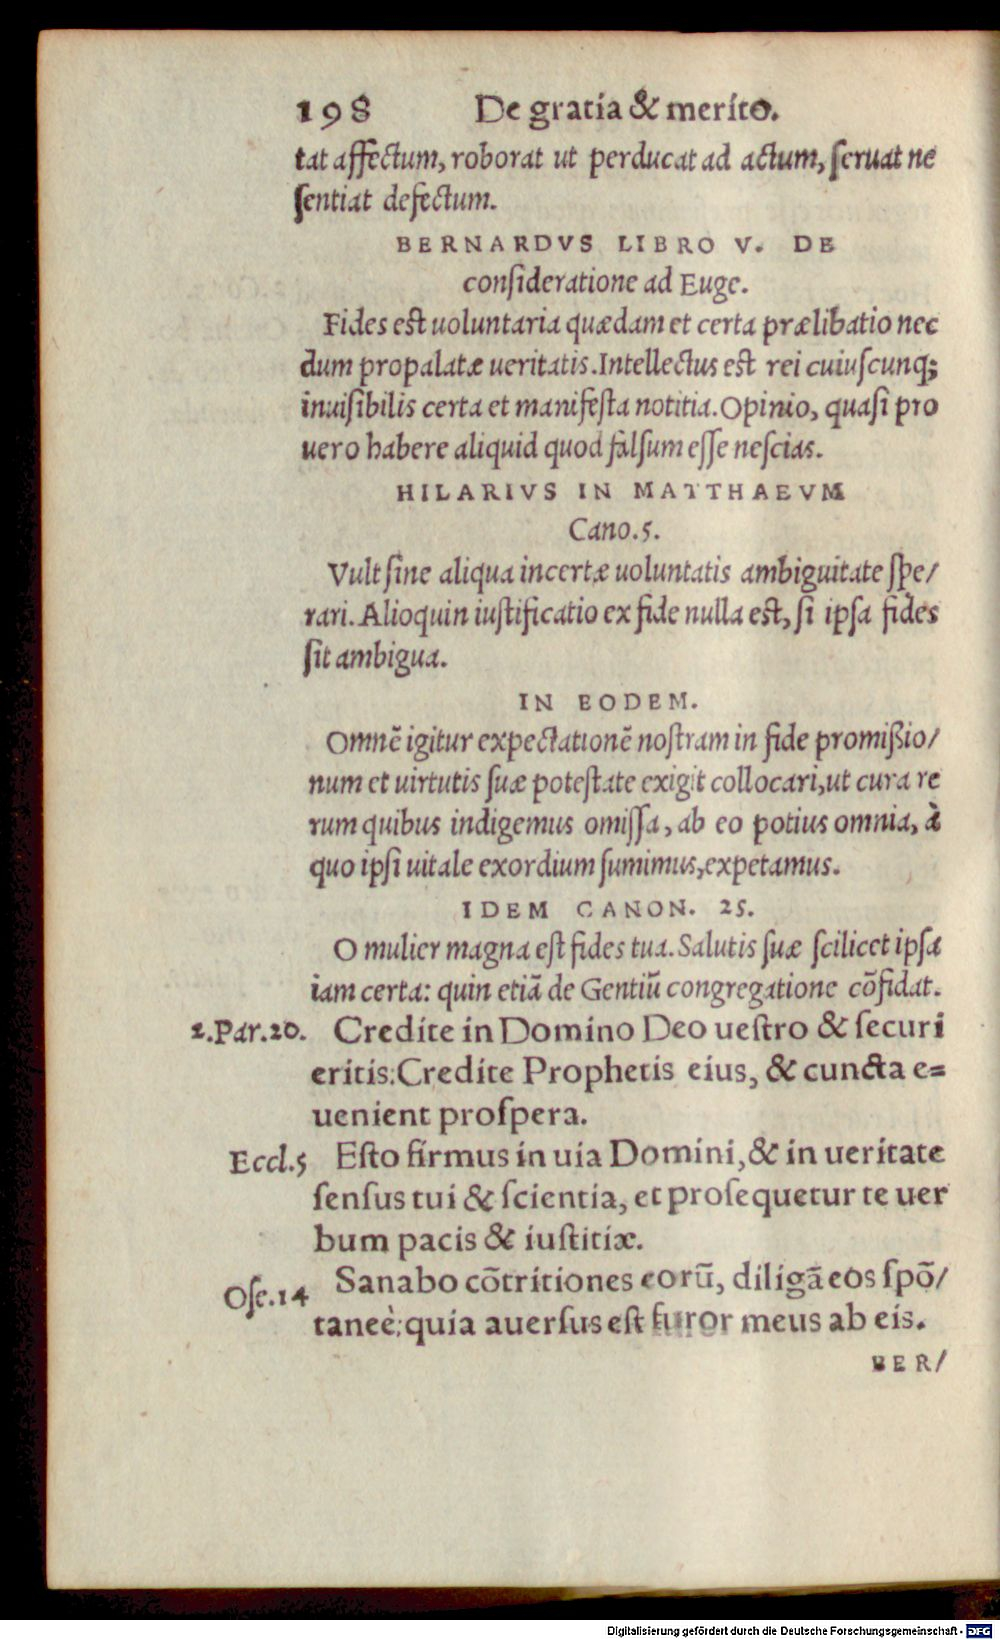 198 De gratia & merito.
tat affectum, roborat ut perducat ad actum, ſeruat ne
ſentiat defectum.
BERNARDVS LIBRO V. DE
conſideratione ad Euge.
Fides est uoluntaria quædam et certa prælibatio nec
dum propalatæ ueritatis. Intellectus est rei cuiuſcunq;
inuiſibilis certa et manifeſta notitia. Opinio, quaſi pro
uero habere aliquid quod falſum eſſe neſcias.
HILARIVS IN MATTHAEVM
Cano.5.
Vult ſine aliqua incertæ uoluntatis ambiguitate ſpe/
rari. Alioquin iuſtificatio ex fide nulla est, ſi ipſa fides
ſit ambigua.
IN EODEM.
Omnē igitur expectationē noſtram in fide promißio/
num et uirtutis ſuæ poteſtate exigit collocari, ut cura re
rum quibus indigemus omiſſa, ab eo potius omnia, à
quo ipſi uitale exordium ſumimus, expetamus.
IDEM CANON. 25.
O mulier magna eſt fides tua. Salutis ſuæ ſcilicet ipſa
iam certa: quin etiā de Gentiū congregatione cōfidat.
2.Par.20. Credite in Domino Deo ueſtro & ſecuri
eritis: Credite Prophetis eius, & cuncta e=
uenient proſpera.
Eccl.5 Eſto firmus in uia Domini, & in ueritate
ſenſus tui & ſcientia, et proſequetur te uer
bum pacis & iuſtitiæ.
Oſe.14 Sanabo cōtritiones eorū, diligā eos ſpō/
taneè: quia auerſus eſt furor meus ab eis.
BER/
Digitalisierung gefördert durch die Deutsche Forschungsgemeinschaft - DFG